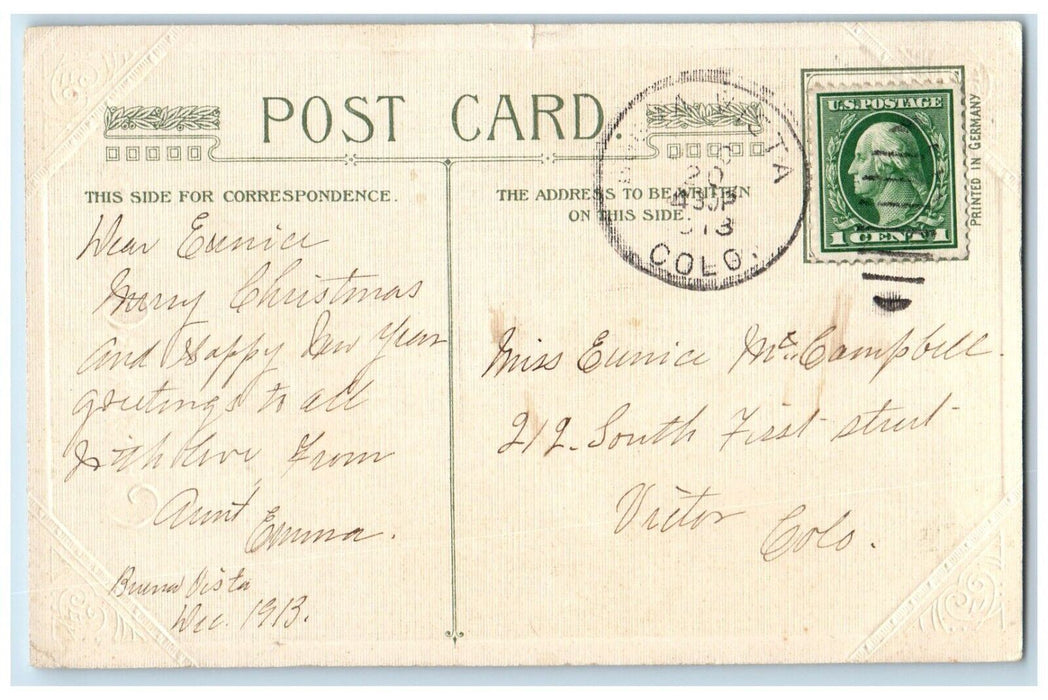 POST CARD.
THIS SIDE FOR CORRESPONDENCE.
Dear Eunice
Merry Christmas
and Happy New Year
greetings to all
With love From
Aunt Emma.
Buena Vista
Dec. 1913.
THE ADDRESS TO BE WRITTEN
ON THIS SIDE.
VISTA
20
430P
COLO.
U.S. POSTAGE
1 CENT 1
PRINTED IN GERMANY
Miss Eunice Mc Campbell.
212. South First street
Victor Colo.